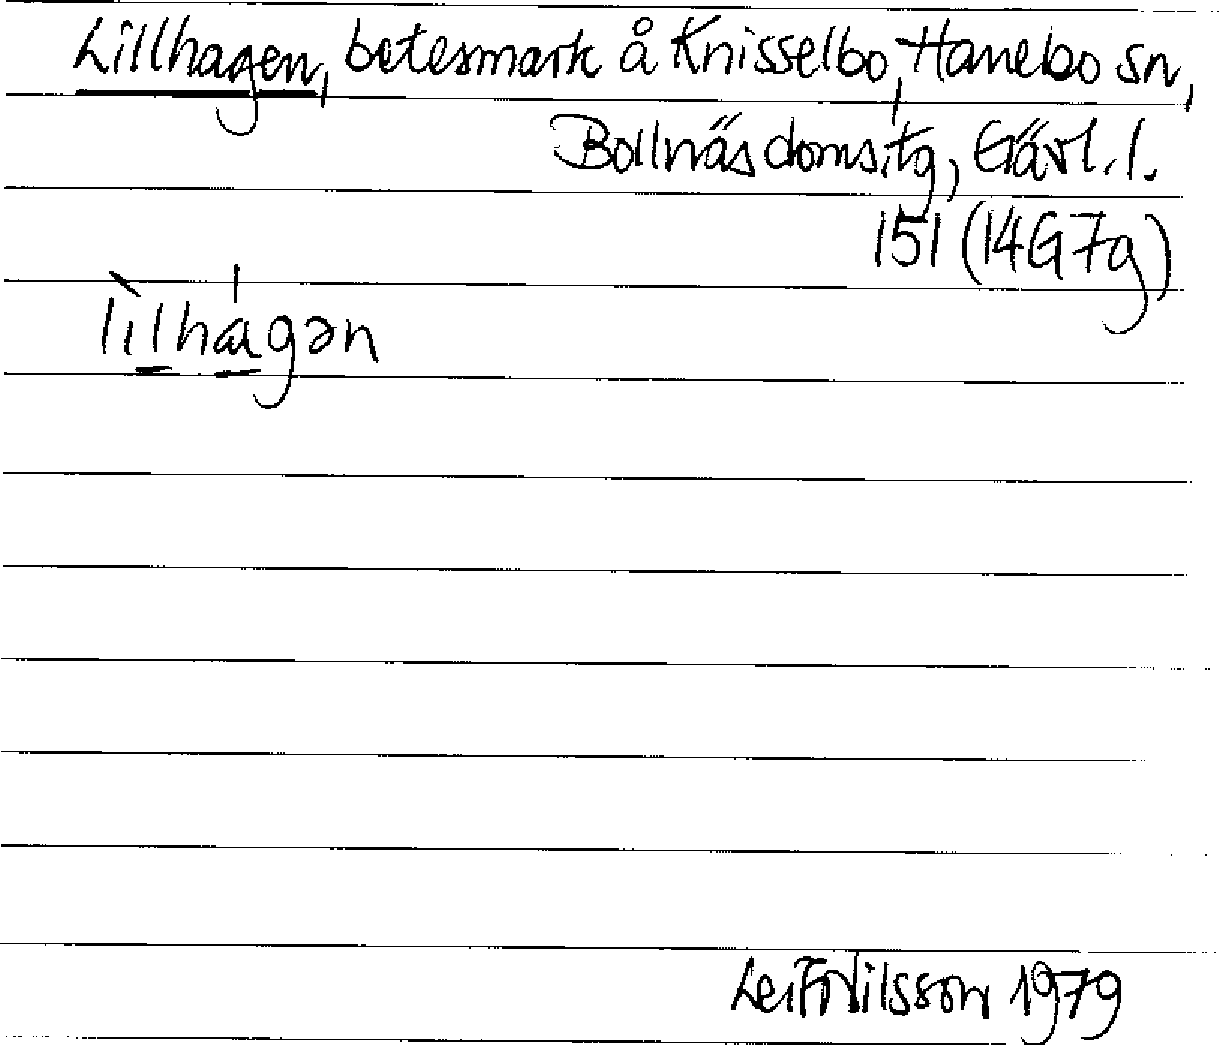 Lillhagen, betesmark å Knisselbo, Hanebo sn,
Bollnäs doms.tg, Gävl.l.
151 (14G7g)
lìlhágən
Leif Nilsson 1979